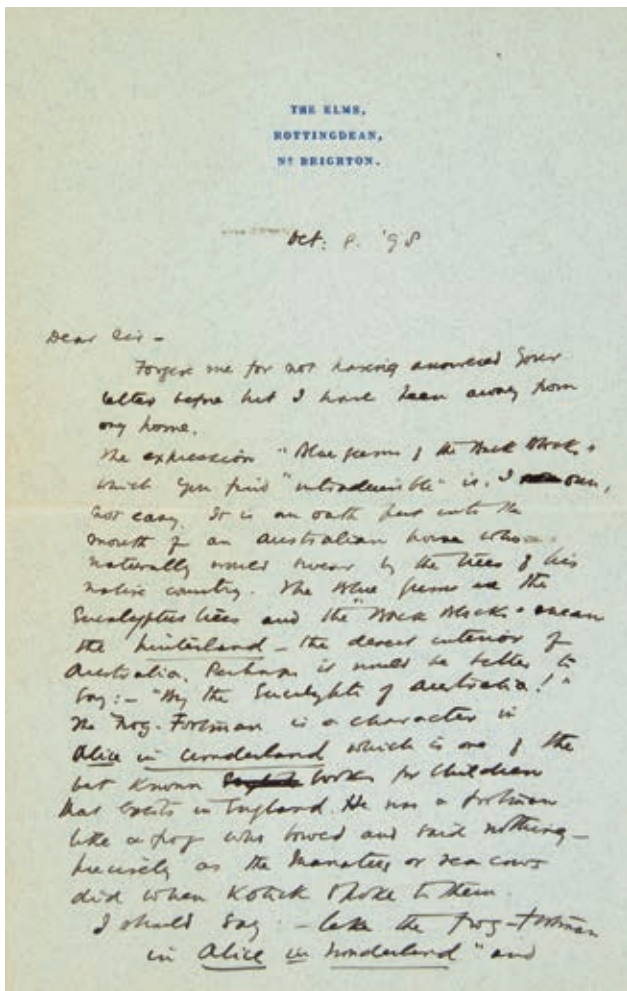 THE ELMS,
ROTTINGDEAN,
Nᴿ BRIGHTON.
Oct: 8. '98
Dear Sir –
Forgive me for not having answered your
letter before but I have been away from
my home.
The expression "Blue gums of the Back Blocks"
which you find "intraduisible" is, I own,
not easy. It is an oath put into the
mouth of an Australian horse who
naturally would swear by the trees of his
native country. The Blue gums are the
Eucalyptus trees and the "Back Blocks" mean
the hinterland – the desert interior of
Australia. Perhaps it would be better to
say: – "By the Eucalypts of Australia!"
The Frog-Footman is a character in
Alice in Wonderland which is one of the
best known books for children
that exists in England. He was a footman
like a frog who bowed and said nothing –
precisely as the Manatees or sea cows
did when Kotick spoke to them.
I should say: – like the Frog-Footman
in Alice in Wonderland" and